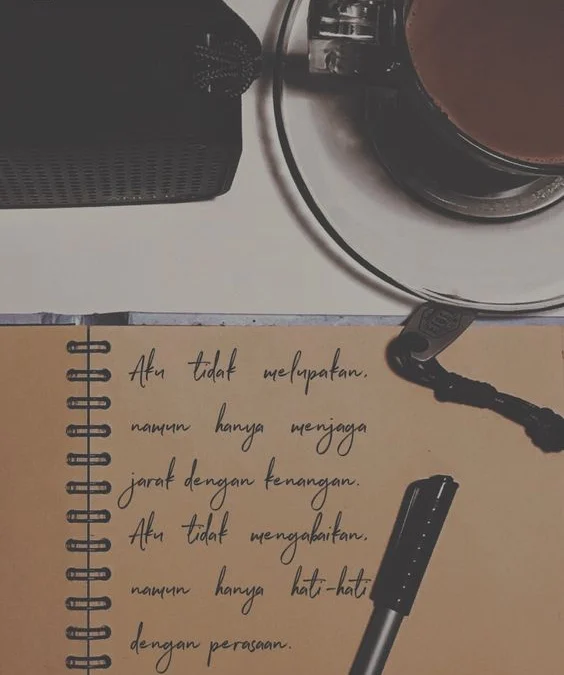 Aku tidak melupakan.
namun hanya menjaga
jarak dengan kenangan.
Aku tidak mengabaikan.
namun hanya hati-hati
dengan perasaan.